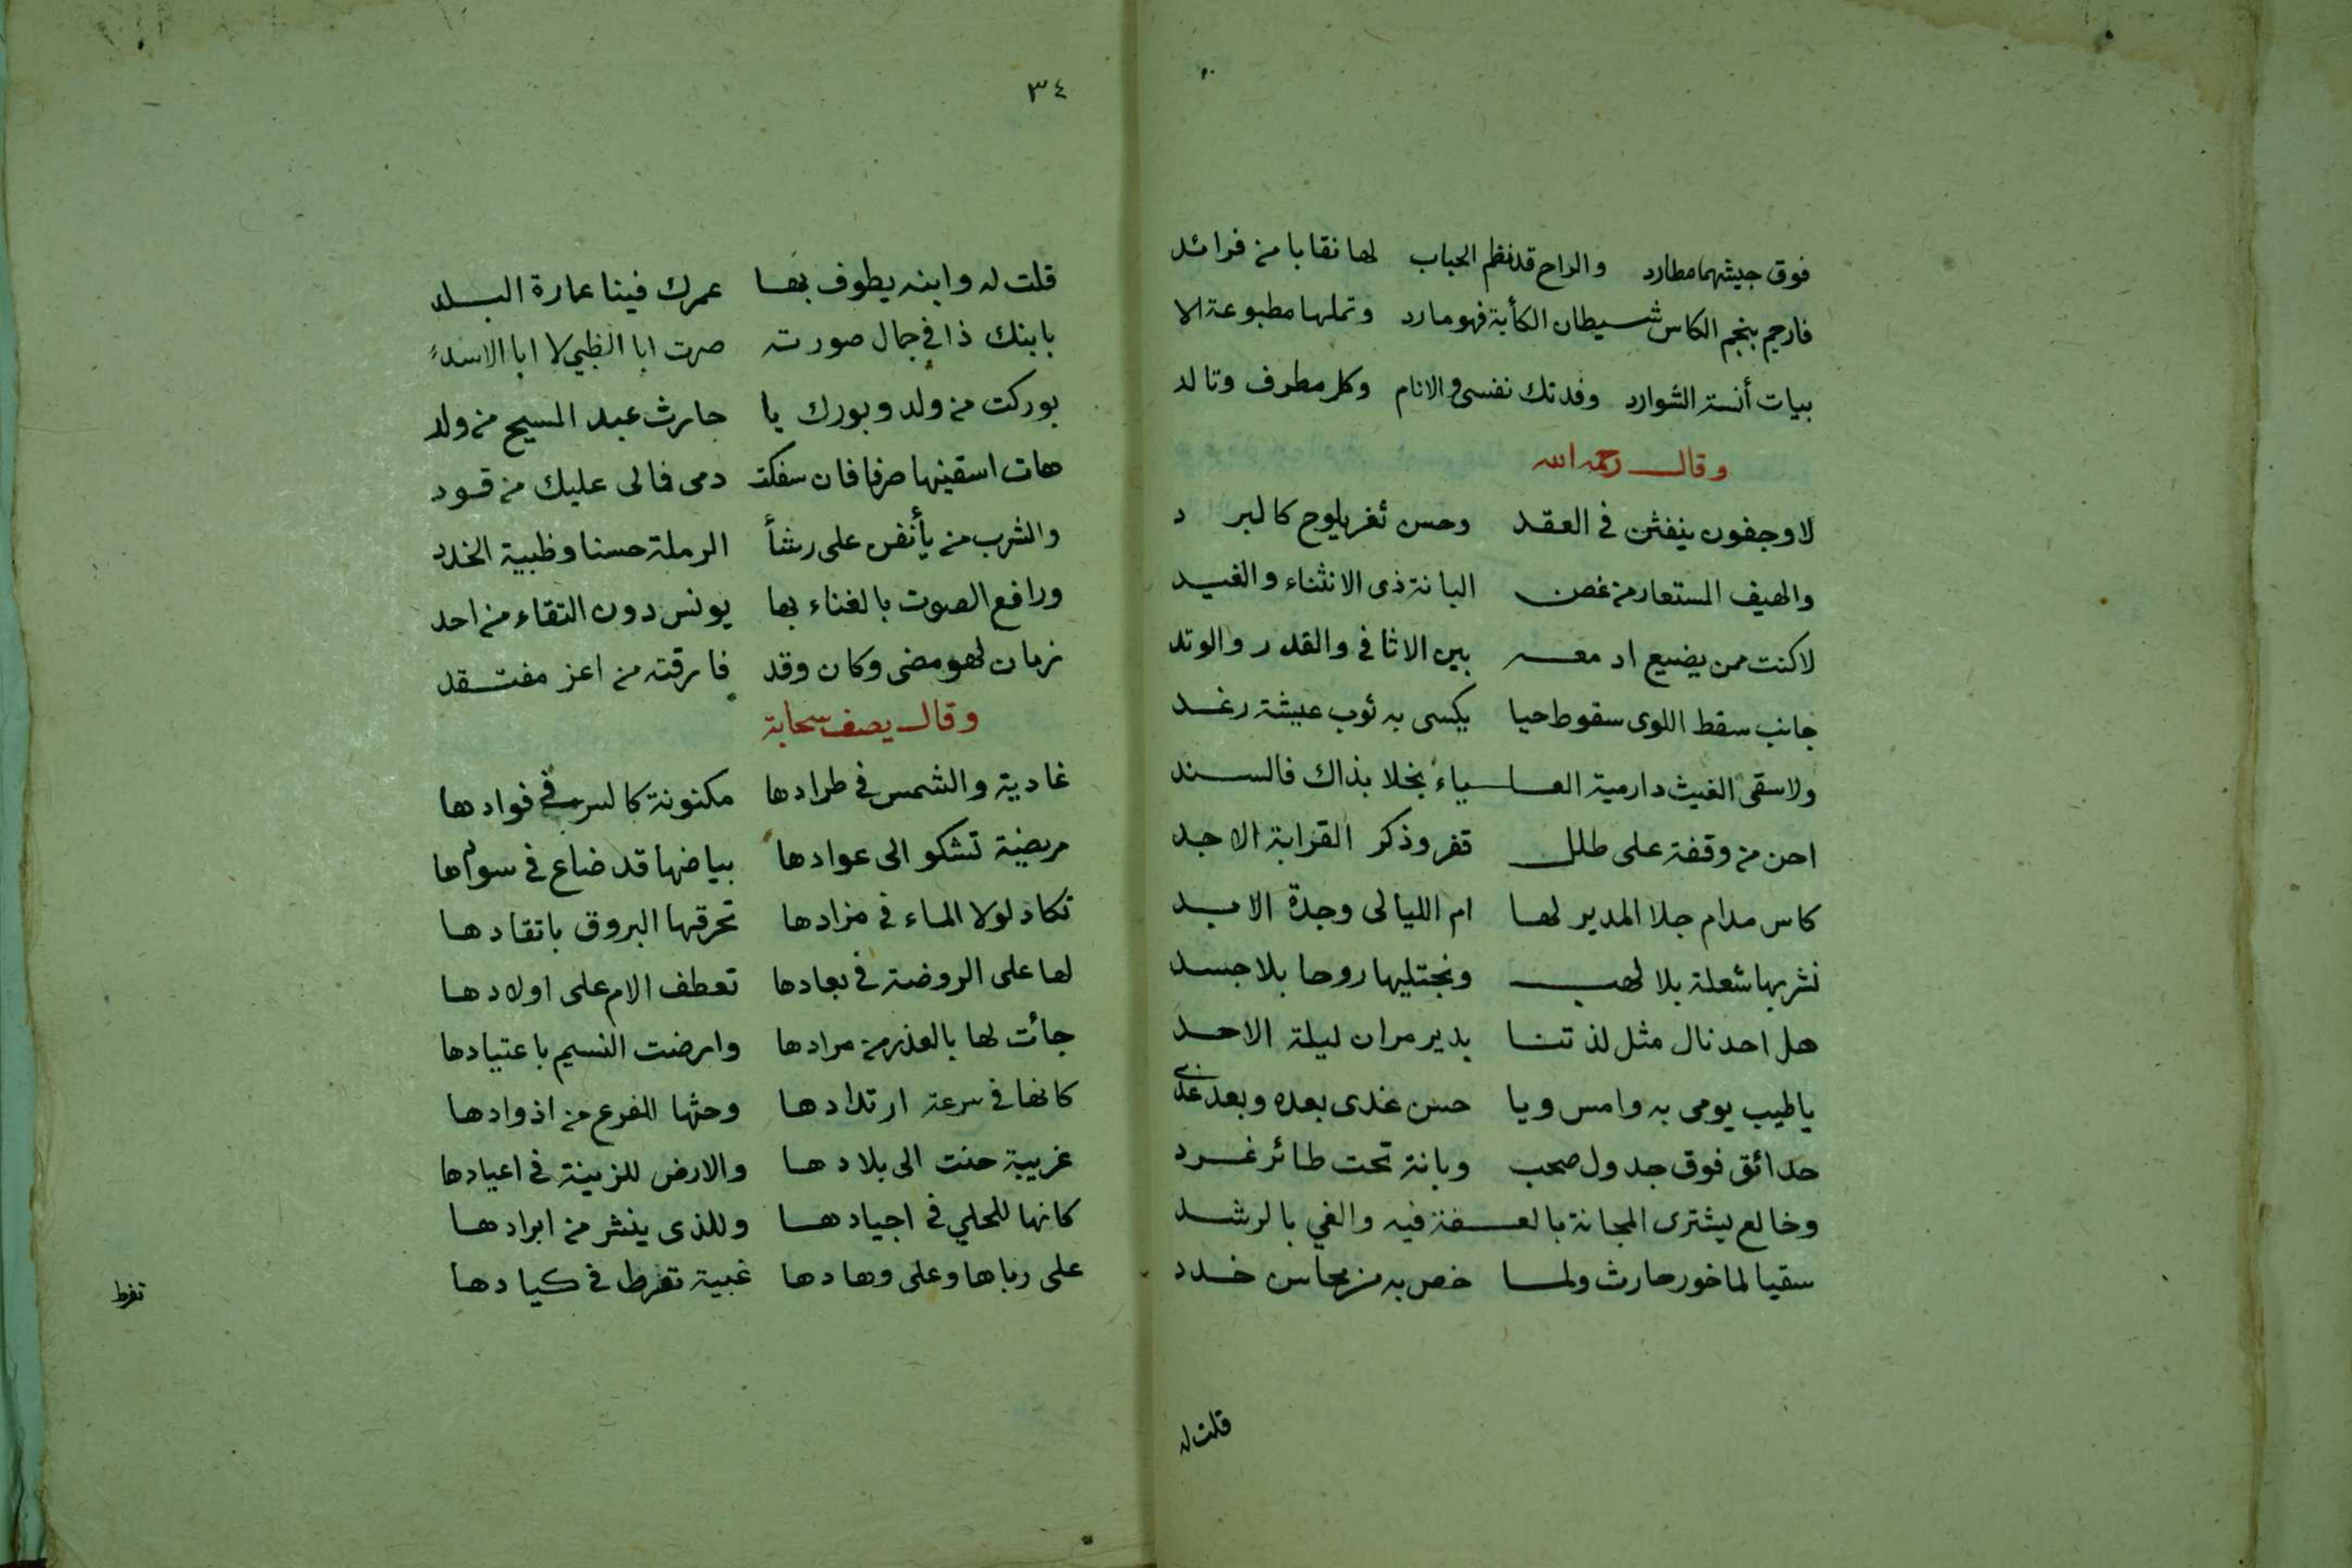 فوق جيشهما مطارد والراح قد نظم الحباب لها نقابا من فرائد
فارجم بنجم الكاس شيطان الكأبة فهو مارد وتملها مطبوعة الا
بيات أنسة الشوارد وفدتك نفسى والانام وكل مطرف وتالد
وقال رحمه الله
لا وجفون ينفثن فى العقد وحسن ثغر يلوح كالبرد
والهيف المستعار من غصن البانة ذى الانثناء والغيد
لا كنت ممن يضيع ادمعه بين الاثافى والقدر والوتد
جانب سقط اللوى سقوط حيا يكسى به ثوب عيشة رغد
ولا سقى الغيث دارمية العلياء بخلا بذاك فالسند
احن من وقفة على طلل قفر وذكر القرابة الاجد
كاس مدام جلا المدير لها ام الليالى وجدة الابد
نشربها شعلة بلا لهب ونجتليها روحا بلا جسد
هل احد نال مثل لذتنا بدير مران ليلة الاحد
ياطيب يومى به وامس ويا حسن غدى بعده وبعد غدى
حدائق فوق جدول صخب وبانة تحت طائر غرد
وخالع يشترى المجانة بالعفة فيه والغي بالرشد
سقيا لماخور حارث ولما خص به من محاسن خدد
قلت له
٣٤
قلت له وابنه يطوف بها عمرك فينا عمارة البلد
بابنك ذا في جمال صورته صرت ابا الظبي لا ابا الاسد
بوركت من ولد وبورك يا حارث عبد المسيح من ولد
هات اسقينها صرفا فان سفكت دمى فما لى عليك من قود
والشرب من يأنفس على رشأ الرملة حسنا وظبية الخدد
ورافع الصوت بالغناء بها يونس دون التقاء من احد
زمان لهو مضى وكان وقد فارقته من اعز مفتقد
وقال يصف سحابة
غادية والشمس في طرادها مكنونة كالسر في فوادها
مريضة تشكو الى عوادها بياضها قد ضاع في سوادها
تكاد لولا الماء في مزادها تحرقها البروق باتقادها
لها على الروضة في بعادها تعطف الام على اولادها
جائت لها بالعذر من مرادها وامرضت النسيم باعتيادها
كانها في سرعة ارتدادها وحثها الفرع من اذوادها
غريبة حنت الى بلادها والارض للزينة في اعيادها
كانها للحلي في اجيادها وللذى ينثر من ابرادها
على رباها وعلى وهادها غبية تفرط في كيادها
تفرط